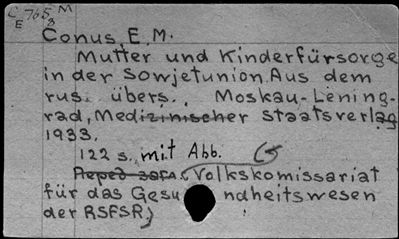 C 765 M
E 3
Conus, E. M.
Mutter und Kinderfürsorge
in der Sowjetunion. Aus dem
rus. übers., Moskau-Lening-
rad, Medizinischer Staatsverlag
1933.
122 s. mit Abb.
(Volkskomissariat
für das Gesundheitswesen
der RSFSR)